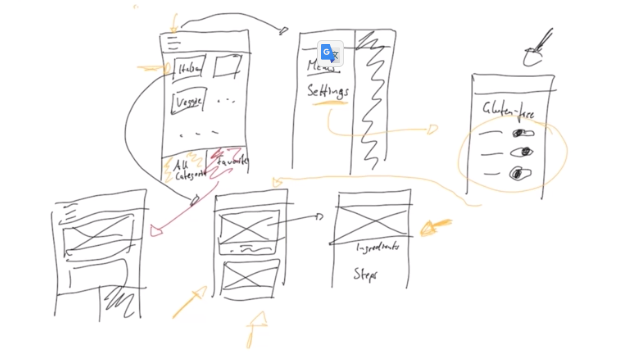 Italian
Veggie
All
Categories
Favorite
Menu
Settings
Gluten-free
Ingredients
Steps